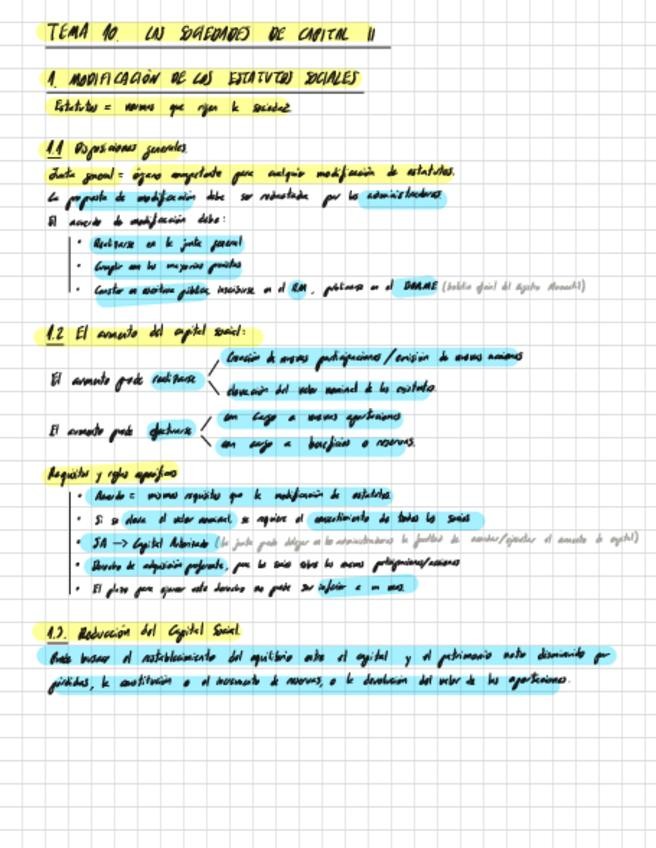 TEMA 10. LAS SOCIEDADES DE CAPITAL II
1. MODIFICACIÓN DE LOS ESTATUTOS SOCIALES
Estatutos = normas que rijen la sociedad
1.1 Disposiciones generales.
Junta general = órgano competente para cualquier modificación de estatutos.
La propuesta de modificación debe ser redactada por los administradores.
El acuerdo de modificación debe:
· Realizarse en la junta general
· Cumplir con las mayorías previstas
· Constar en escritura pública, inscribirse en el RM, publicarse en el BORME (boletín oficial del Registro Mercantil)
1.2 El aumento del capital social:
Creación de nuevas participaciones / emisión de nuevas acciones
El aumento puede realizarse
elevación del valor nominal de las existentes.
con cargo a nuevas aportaciones
El aumento puede efectuarse
con cargo a beneficios o reservas.
Requisitos y reglas específicas
· Acuerdo = mismos requisitos que la modificación de estatutos.
· Si se eleva el valor nominal, se requiere el consentimiento de todos los socios
· SA → Capital Autorizado (la junta puede delegar en los administradores la facultad de acordar/ejecutar el aumento de capital)
· Derecho de adquisición preferente, para los socios sobre las nuevas participaciones/acciones
· El plazo para ejercer este derecho no puede ser inferior a un mes.
1.3. Reducción del Capital Social.
Puede buscar el restablecimiento del equilibrio entre el capital y el patrimonio neto disminuido por
pérdidas, la constitución o el incremento de reservas, o la devolución del valor de las aportaciones.